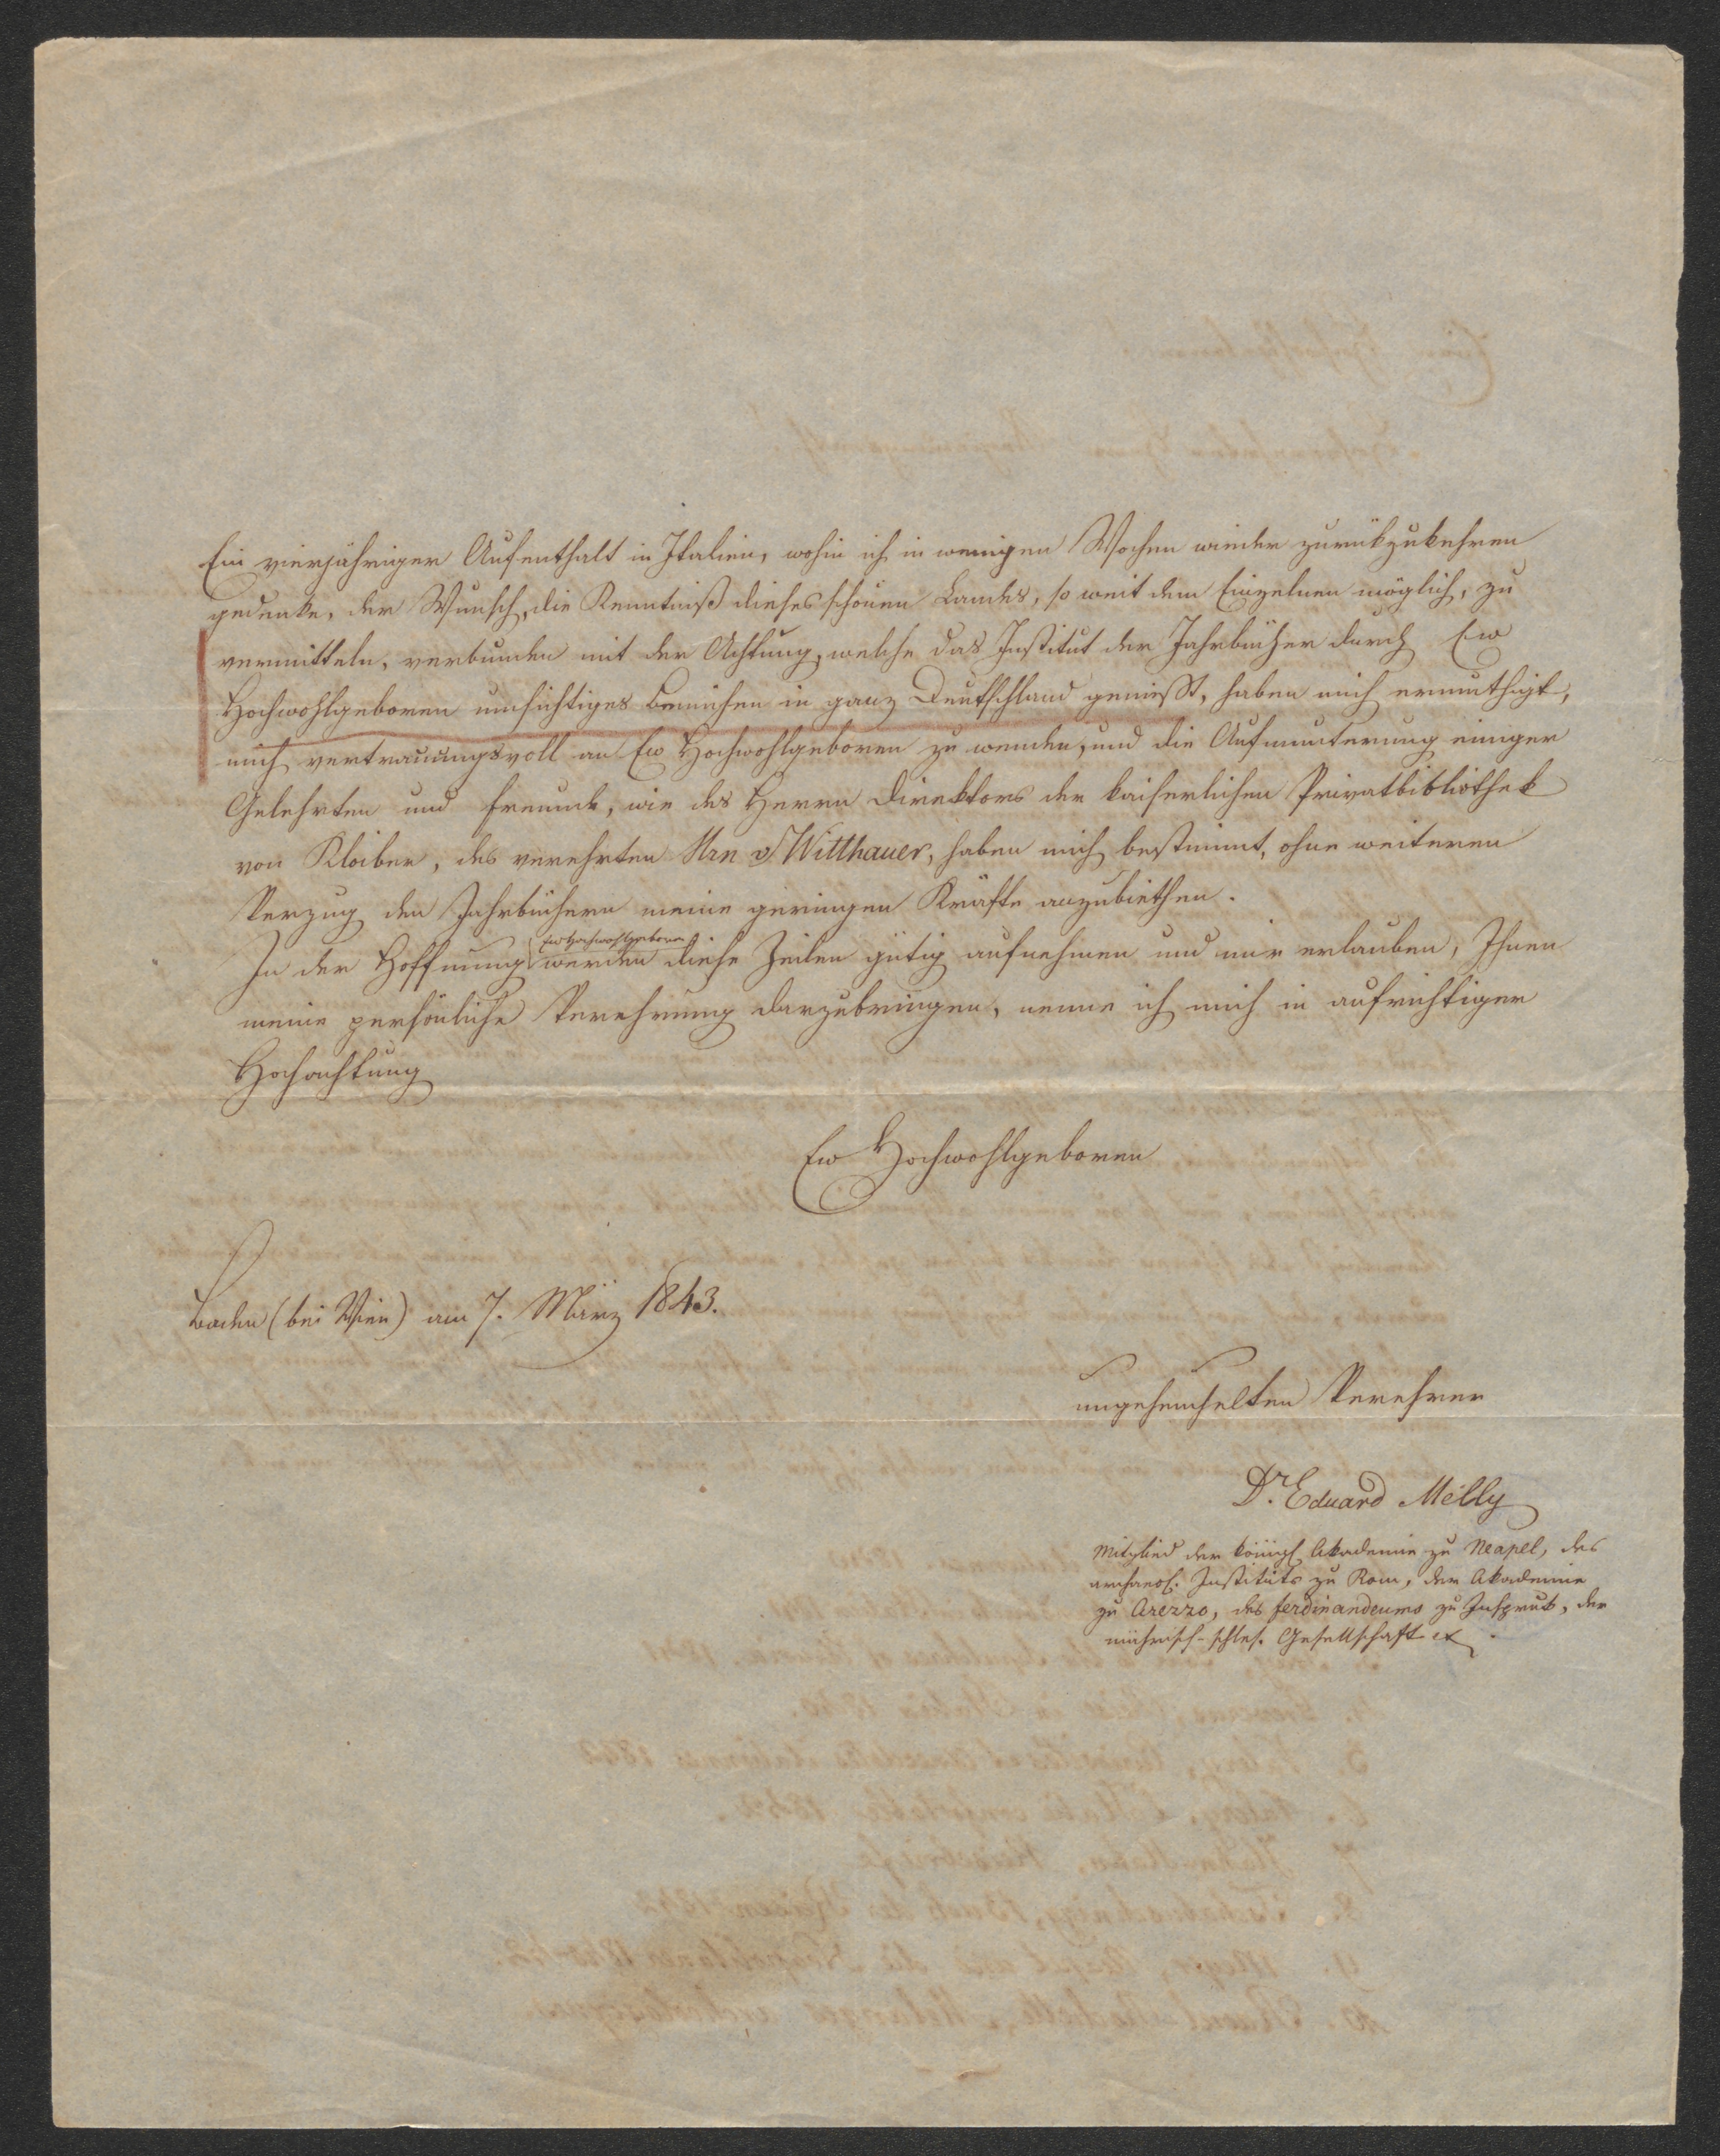 Ein vierjähriger Aufenthalt in Italien, wohin ich in wenigen Wochen wieder zurükzukehren
gedenke, der Wunsch, die Kenntniß dieses schönen Landes, so weit dem Einzelnen möglich, zu
vermitteln, verbunden mit der Achtung, welche das Institut der Jahrbücher durch Ew
Hochwohlgeboren umsichtiges Bemühen in ganz Deutschland genießt, haben mich ermuthigt,
mich vertrauungsvoll an Ew Hochwohlgeboren zu wenden, und die Aufmunterung einiger
Gelehrten und Freunde, wie des Herrn Direktors der kaiserlichen Privatbibliothek
von Kloiber, des verehrten Hrn v Witthauer, haben mich bestimmt, ohne weiteren
Verzug den Jahrbüchern meine geringen Kräfte anzubiethen.
Ew Hochwohlgeboren
In der Hoffnung werden diese Zeilen gütig aufnehmen und mir erlauben, Ihnen
meine persönliche Verehrung darzubringen, nenne ich mich in aufrichtiger
Hochachtung
Ew Hochwohlgeboren
Baden (bei Wien) am 7. März 1843.
ungeheuchelten Verehrer
Dr. Eduard Melly
Mitglied der königl Akademie zu Neapel, des
archaeol. Instituts zu Rom, der Akademie
zu Arezzo, des Ferdinandeums zu Inspruk, der
mährisch-schles. Gesellschaft etc